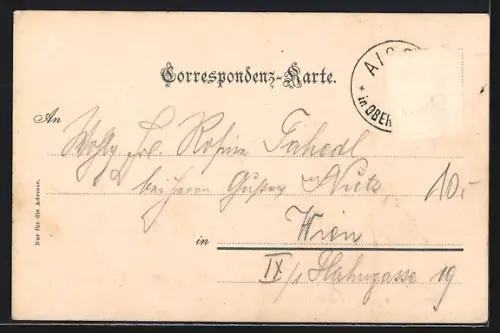 Correspondenz-Karte.
AIS
* in OBER
An
Wohlg. Frl. Rosina
bei Herrn Gustav Nutz
10.-
in Wien
IX/1 Hahngasse 19
Nur für die Adresse.